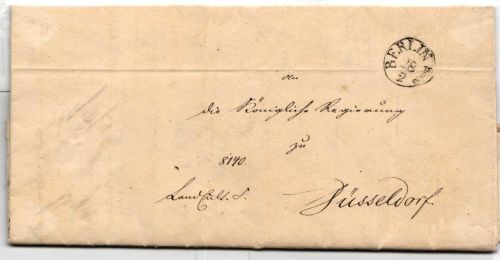 BERLIN
28
2
an
die Königliche Regierung
zu
8140.
Düsseldorf